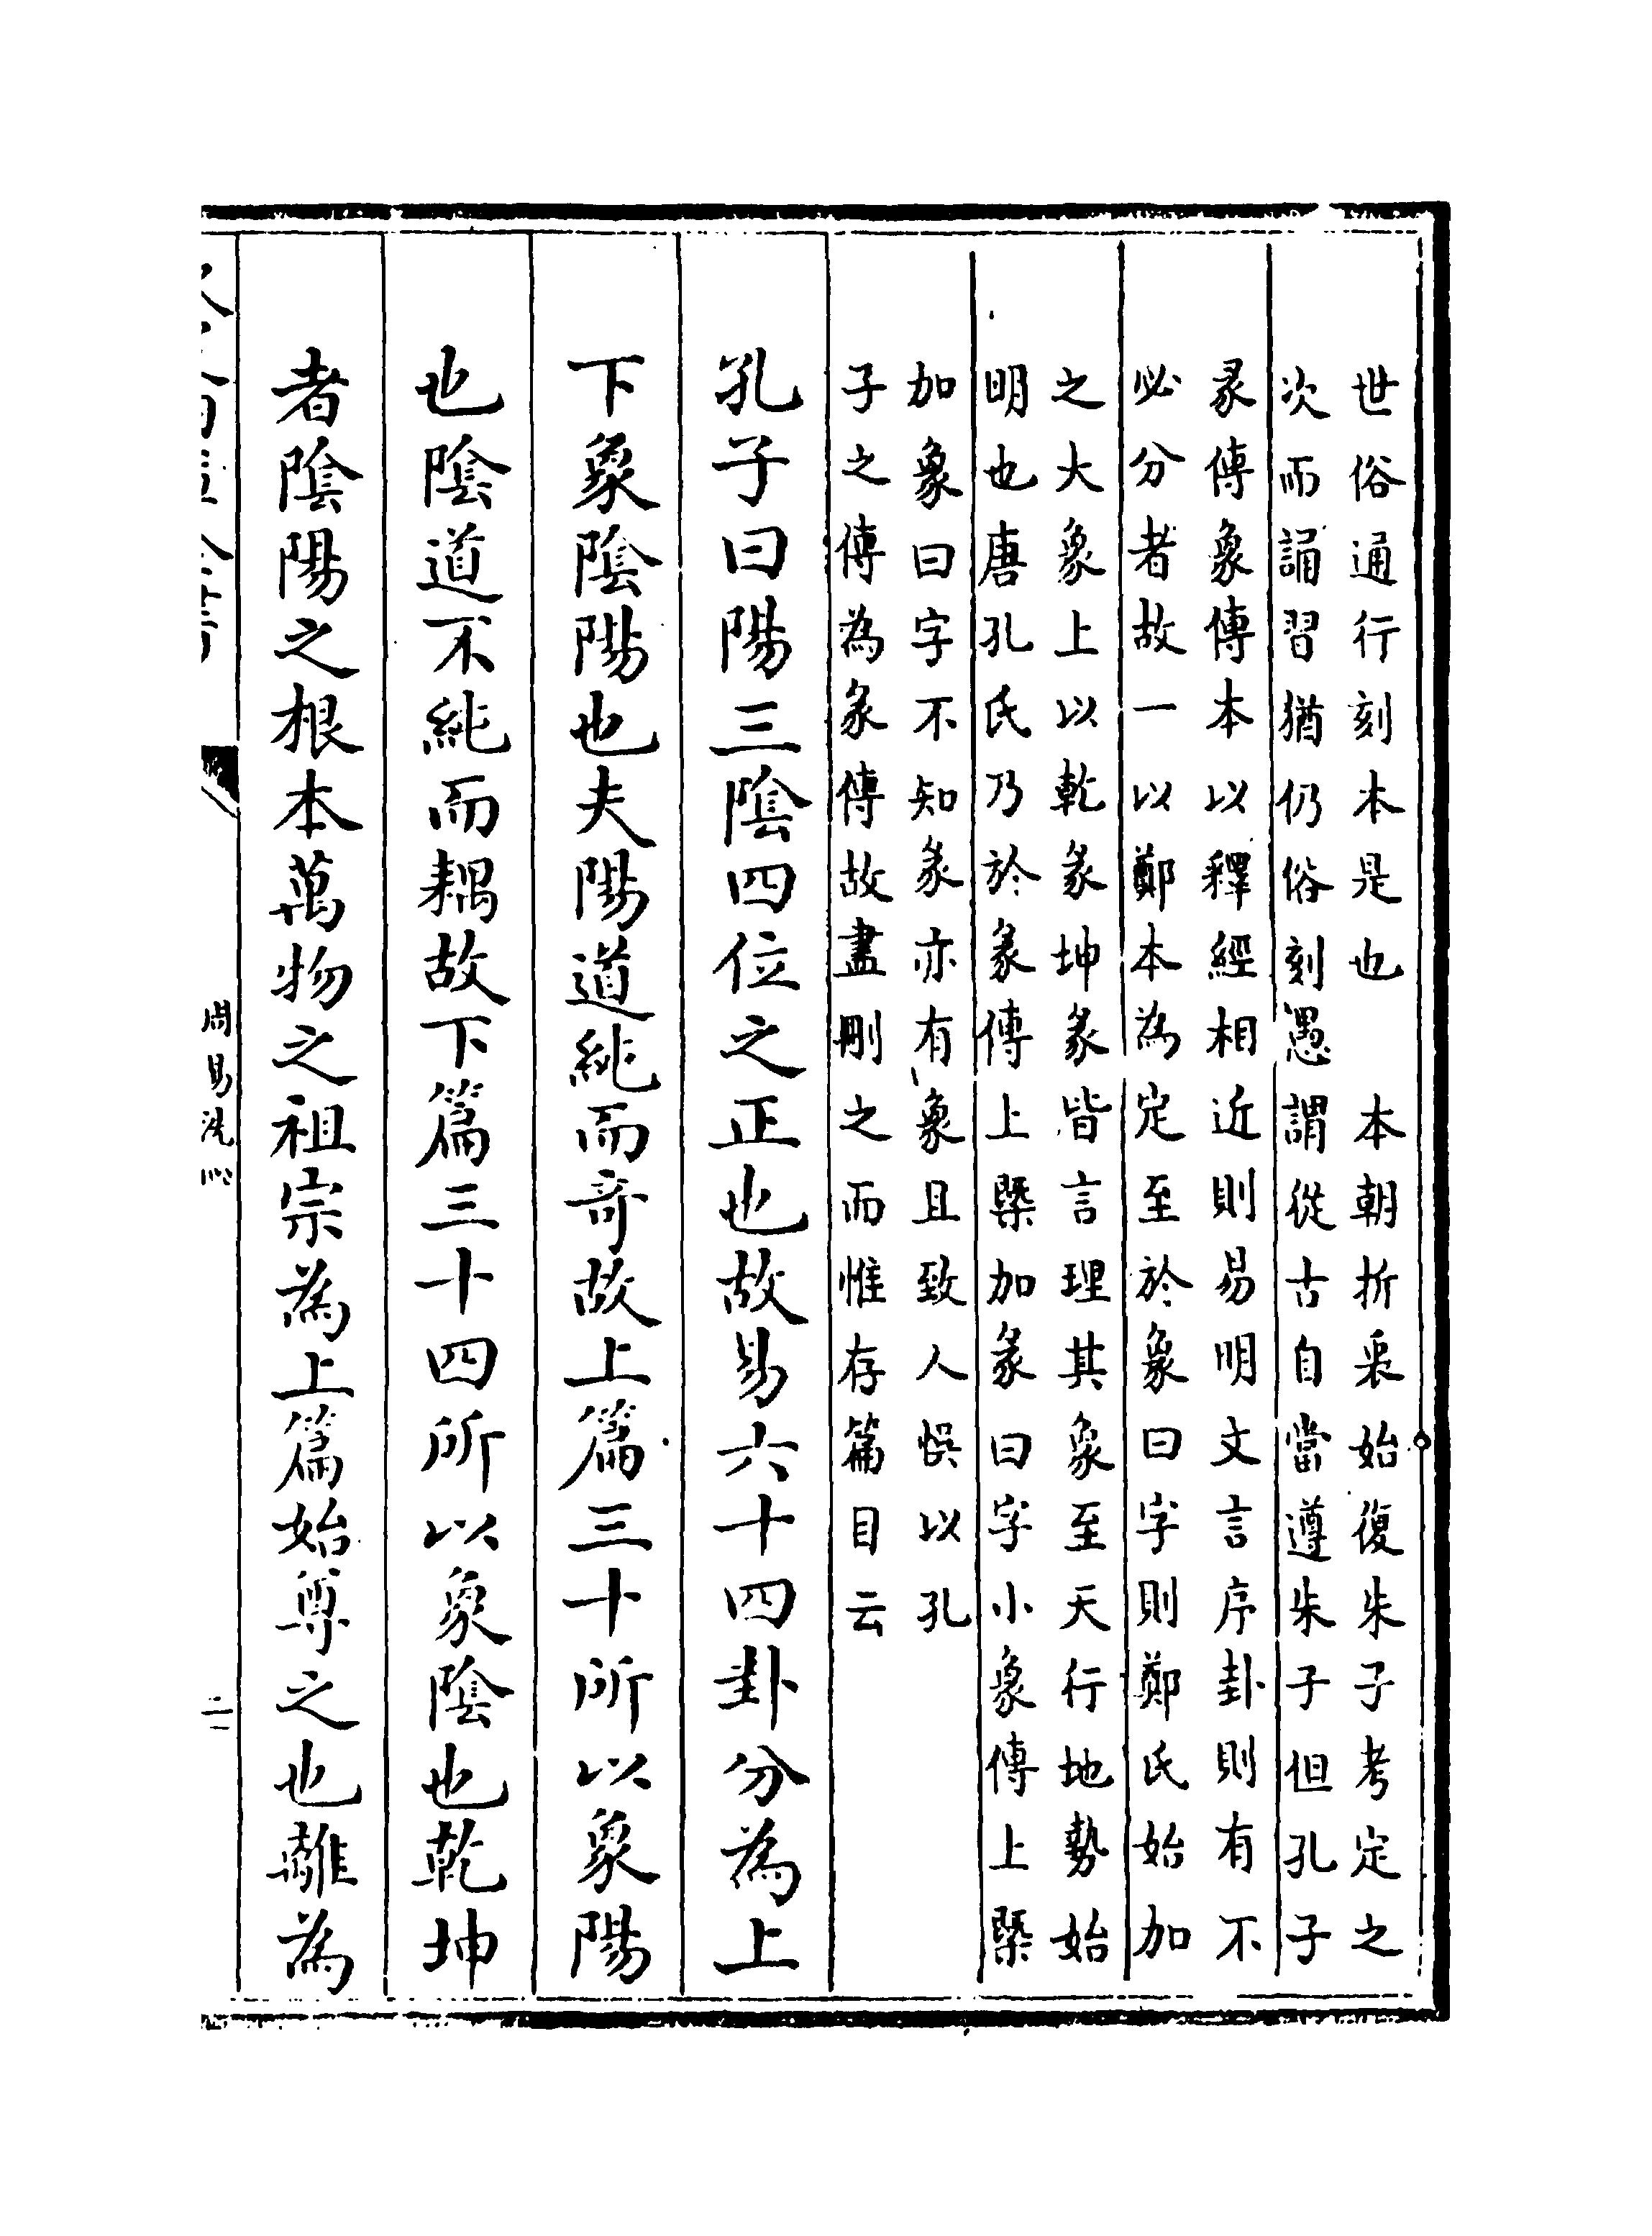 世俗通行刻本是也　本朝折衷始復朱子考定之
次而誦習猶仍俗刻愚謂從古自當遵朱子但孔子
彖傳象傳本以釋經相近則易明文言序卦則有不
必分者故一以鄭本為定至於象曰字則鄭氏始加
之大象上以乾彖坤彖皆言理其象至天行地勢始
明也唐孔氏乃於彖傳上槩加彖曰字小象傳上槩
加象曰字不知彖亦有象且致人悞以孔
子之傳為彖傳故盡刪之而惟存篇目云
孔子曰陽三陰四位之正也故易六十四卦分為上
下象陰陽也夫陽道純而奇故上篇三十所以象陽
也陰道不純而耦故下篇三十四所以象陰也乾坤
者陰陽之根本萬物之祖宗為上篇始尊之也離為
周易洗心
二